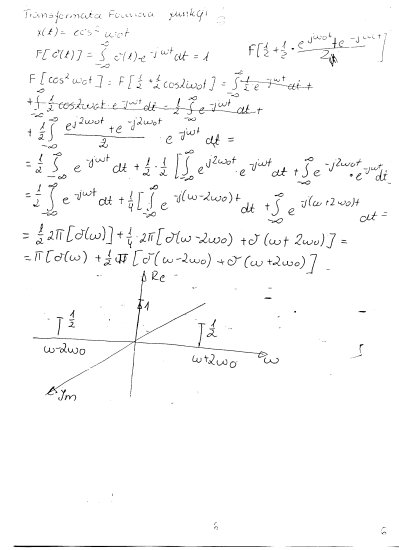 Transformata Fouriera funkcji
x(t) = cos² ω₀t
F[δ(t)] = ∫_{-∞}^{∞} δ(t) e^{-jωt} dt = 1
F[½ + ½ · (e^{jω₀t} + e^{-jω₀t})/2]
F[cos² ω₀t] = F[½ + ½ cos2ω₀t] = ∫_{-∞}^{∞} ½ e^{-jωt} dt +
+ ∫_{-∞}^{∞} ½ cos2ω₀t · e^{-jωt} dt = ½ ∫_{-∞}^{∞} e^{-jωt} dt +
+ ½ ∫_{-∞}^{∞} (e^{j2ω₀t} + e^{-j2ω₀t})/2 e^{-jωt} dt =
= ½ ∫_{-∞}^{∞} e^{-jωt} dt + ½ · ½ [∫_{-∞}^{∞} e^{j2ω₀t} · e^{-jωt} dt + ∫_{-∞}^{∞} e^{-j2ω₀t} · e^{-jωt} dt
= ½ ∫_{-∞}^{∞} e^{-jωt} dt + ¼ [∫_{-∞}^{∞} e^{-j(ω-2ω₀)t} dt + ∫_{-∞}^{∞} e^{-j(ω+2ω₀)t} dt =
= ½ 2π[δ(ω)] + ¼ · 2π[δ(ω-2ω₀) + δ(ω+2ω₀)] =
= π[δ(ω) + ½ [δ(ω-2ω₀) + δ(ω+2ω₀)]
Re
1
½
½
ω-2ω₀
ω+2ω₀
ω
Jm
6